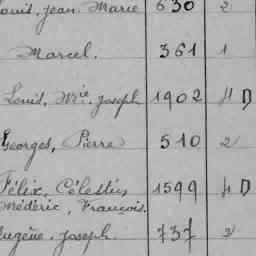 Louis, Jean, Marie 630 2
Marcel. 361 1
Louis, Mie, Joseph 1902 4 D
Georges, Pierre 510 2
Félix, Célestin 1599 4 D
Médéric, François.
Eugène, Joseph. 737 2